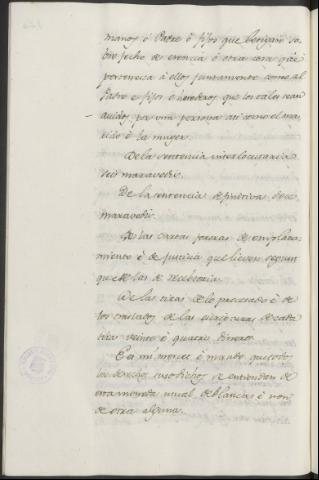 manos ó Padre ó fijos que litiguen so-
bre fecho de erencia ó otra cosa que
pertenesca á ellos juntamente como al
Padre e fijos ó herederos que los tales sean
avidos por una persona asi como el ma-
rido é la muger.
De la sentencia interlocutoria
seis maravedis.
De la sentencia definitiva doce
maravedis.
De las cartas foreras de emplaza-
miento é de justicia que lieven segun
que de las de
De las tiras de lo procesado é de
los traslados de las escripturas de cada
tira veinte é quatro dineros.
É es mi merced é mando que todos
los derechos susodichos se entiendan de
esta moneda usual de blancas é non
de otra alguna.